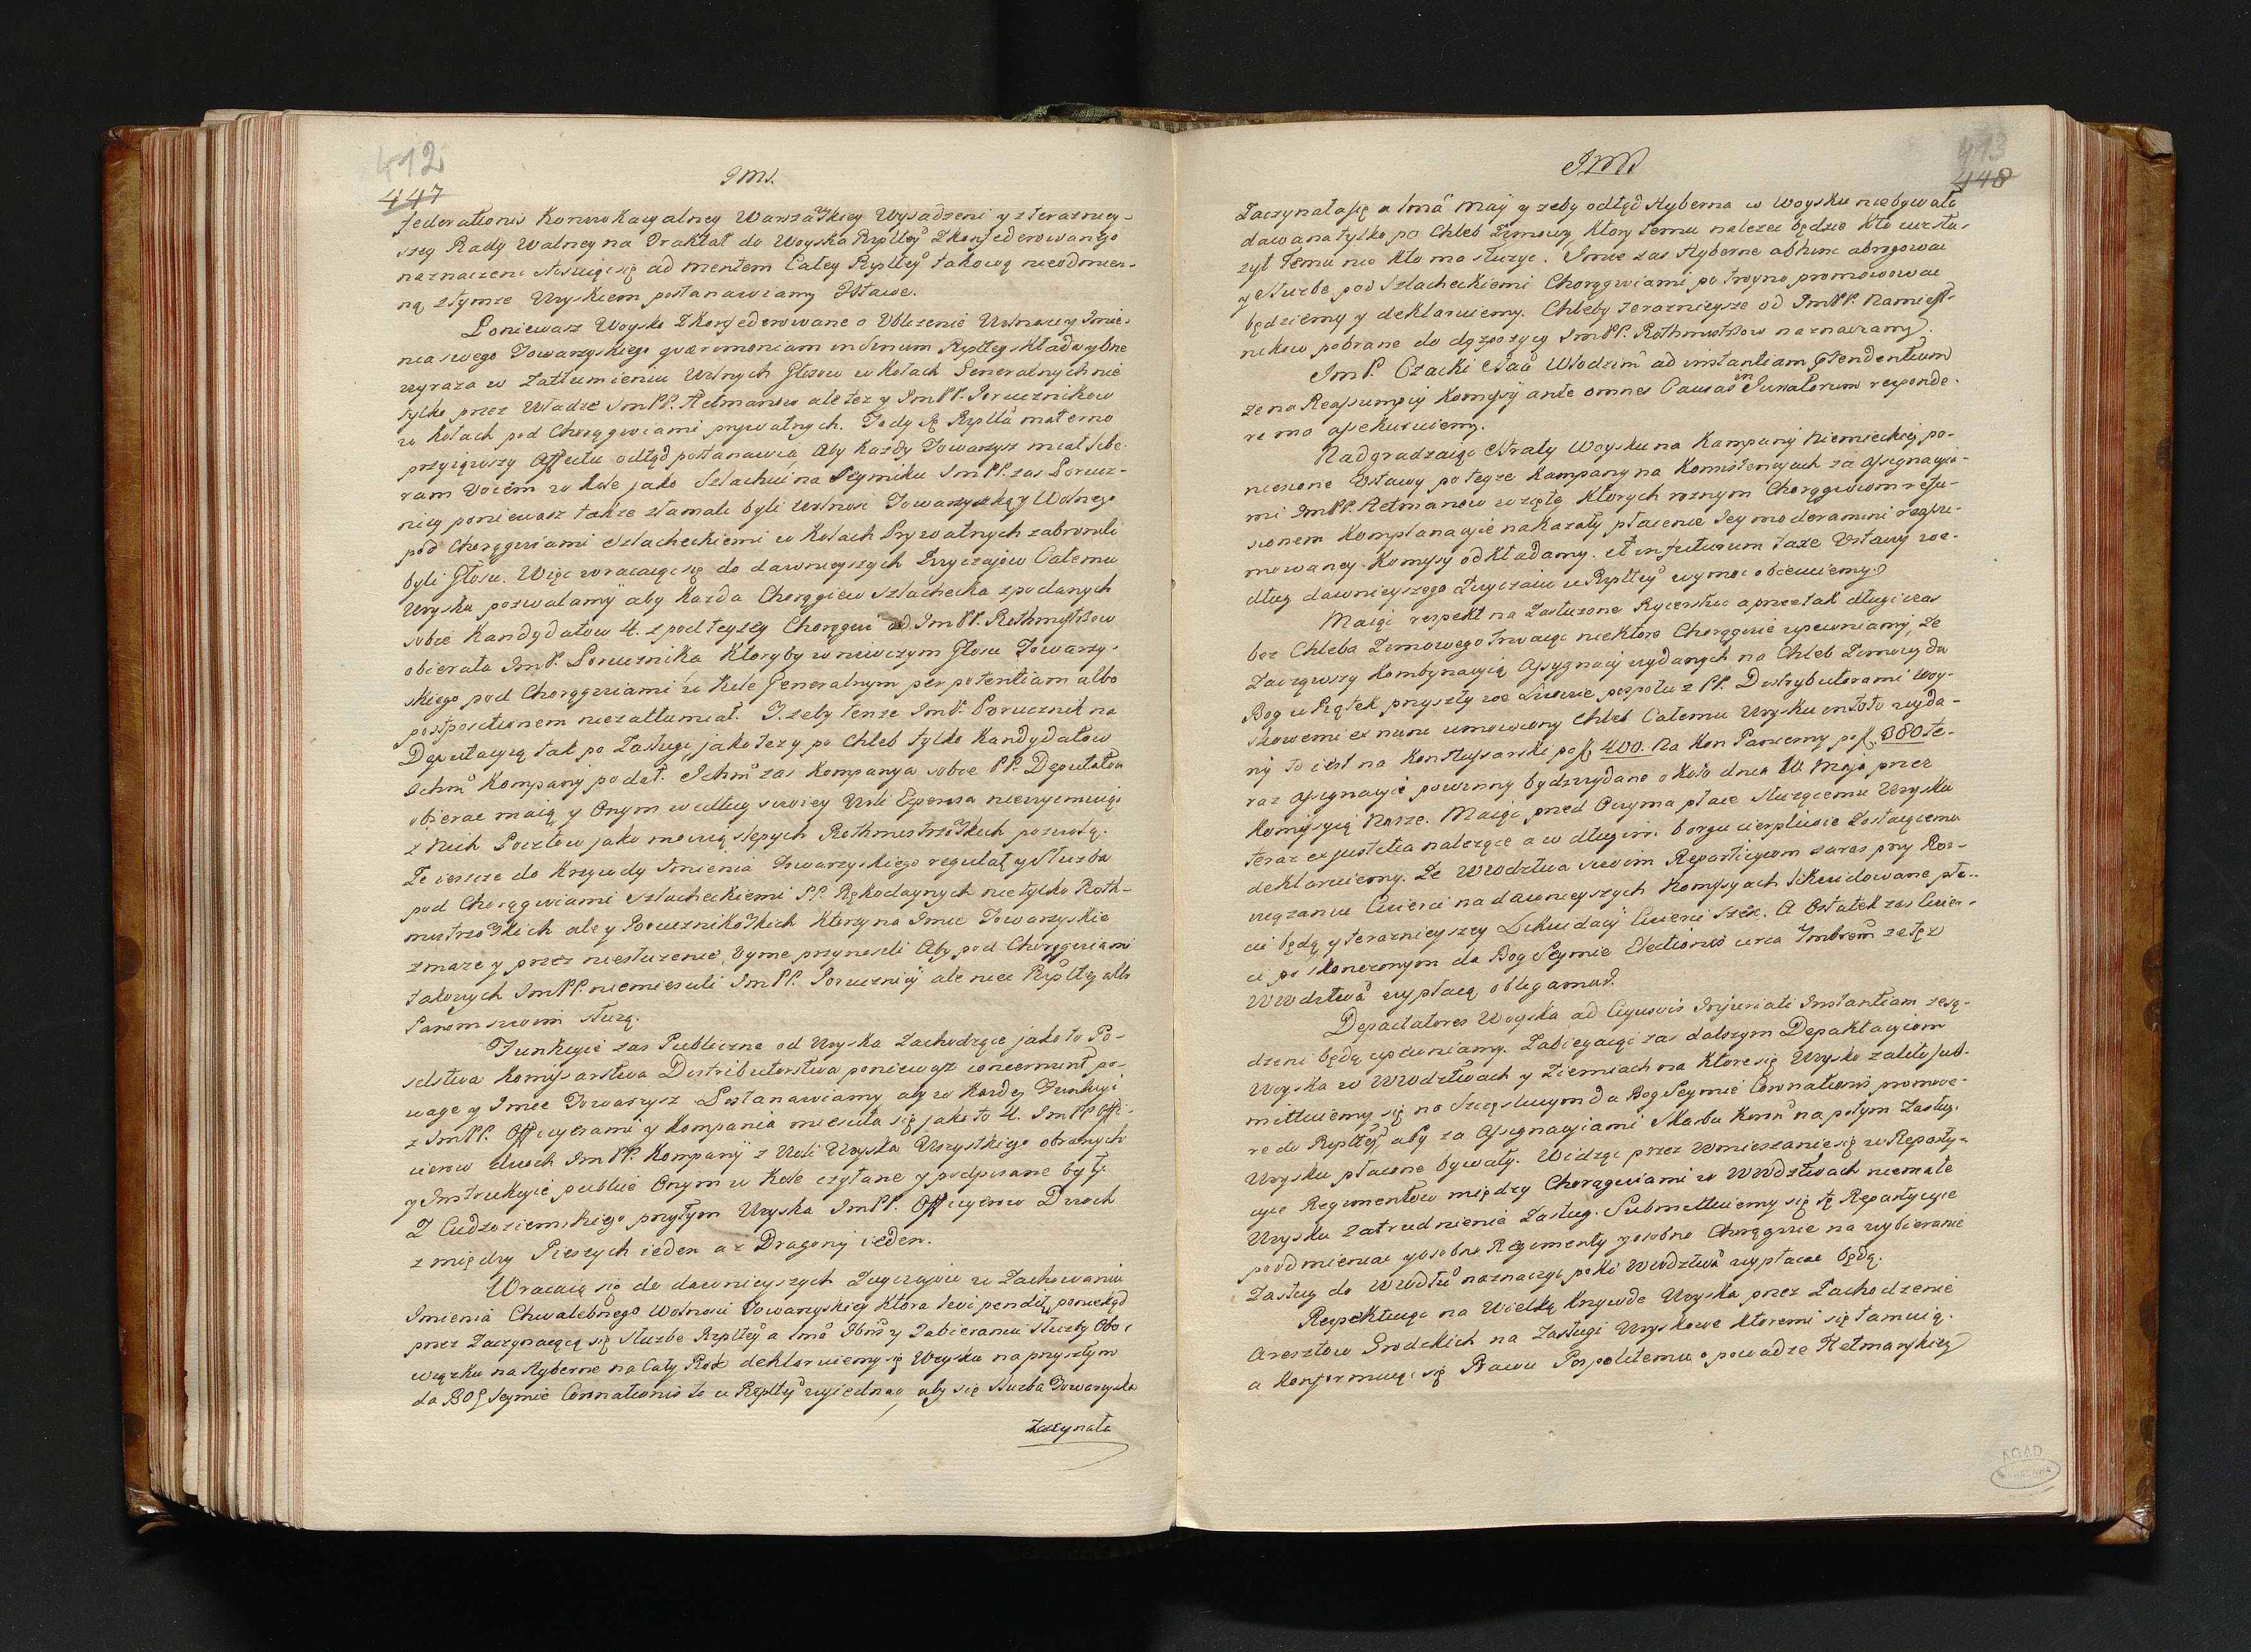 412
447
JMJ.
federationis Konwokacyalney Warszaskiey Wysadzeni y z terazniey-
szey Rady Walney na Traktat do Woyska Rzpltey Zkonfederowanego
naznaczeni stosuiąc się ad mentem Całey Rzpltey takową nieodmien-
ną z tymze Woyskiem postanawiamy Ustawe.
Poniewasz Woysko Zkonfederowane o Ublizenie Wolnosci y Imie-
nia swego Towarzyskiego quaerimoniam in Sinum Rzpltey składa y one
wyraza w Zatłumieniu Wolnych Głosow w Kołach Generalnych nie
tylko przez Władze ImPP. Hetmanow ale tez y ImPP. Porucznikow
w Kołach pod Chorągwiami prywatnych. Tedy ta Rzplta materno
przyiąwszy Affectu odtąd postanawia Aby Kazdy Towarzysz miał libe-
ram Vocem w Kole jako Szlachcic na Seymiku ImPP. zas Porucz-
nicy poniewasz takze złamali byli wolnosc Towarzyską y Wolnego
pod Chorągwiami szlacheckiemi w Kołach Prywatnych zabronili
byli Głosu. Więc wracaiąc się do dawnieyszych Zwyczajow Całemu
Woysku pozwalamy aby Kazda Chorągiew szlachecka z podanych
sobie Kandydatow 4. z pod teyzey Chorągwi od ImPP. Rothmistrzow
obierała ImP. Porucznika Ktoryby w niwczym Głosu Towarzy-
skiego pod Chorągwiami y w Kole Generalnym per potentiam albo
postpositionem niezatłumiał. I zeby tenze ImP. Porucznik na
Deputacyą tak po Zasługi jako tez y po Chleb tylko Kandydatow
Ichm Kompanij podał. Ichm zas Kompanya sobie PP. Deputatow
obierac maią y Onym według swoiey Woli Expensa niewymuiąc
z nich Pocztow jako mowią slepych Rothmistrzoskich pozwolą.
Ze ieszcze do Krzywdy Imienia Towarzyskiego reguluią y Słuzba
pod Chorągwiami szlacheckiemi PP. Rękodaynych nie tylko Roth-
mistrzoskich ale y Porucznikoskich Ktorzy na Imie Towarzyskie
zmaze y przez niesłuzenie Uyme przynosili Aby pod Chorągwiami
takowych ImPP. niemiescili ImPP. Porucznicy ale niech Rzpltey albo
Panom swoim słuzą.
Funkcyie zas Publiczne od Woyska Zachodzące jako to Po-
selstwa Komissarstwa Distributorstwa poniewasz concernunt po-
wage y Imie Towarzysz. Postanawiamy aby w Kazdey Funkcyi
z ImPP. Officyerami y Kompania miesciła się jako to 4. ImPP. Offi-
cierow dwoch ImPP. Kompanij z Woli Woyska Wszystkiego obranych
y Instrukcyie publice Onym w Kole czytane y podpisane były.
Z Cudzoziemskiego przytym Woyska ImPP. Officyerow Dwoch
z między Pieszych ieden a z Dragonij ieden.
Wracaią się do dawnieyszych Zwyczajow w Zachowaniu
Imienia Chwalebnego wolnosci Towarzyskiey Ktora levi penditur poniekąd
przez Zaczynaiącą się słuzbe Rzpltey a 1mã 9bris y Zabieraniu słuzby Obo-
wiązku na Hyberne na Cały Rok deklaruiemy się Woysku na przyszłym
da BOG Seymie Coronationis to u Rzpltey wyiednac, aby się słuzba Towarzyska
Zaczynała
413
448
JMJ
Zaczynała się a 1mã Maij y zeby odtąd Hyberna w Woysku niebywała
dawana tylko po Chleb Zimowy, Ktory temu nalezec będzie Kto wysłu-
zył Temu nie Kto ma słuzyc. Imie zas Hyberne abhinc abrogowac
y słuzbe pod szlacheckiemi Chorągwiami po troyno promowowac
będziemy y deklaruiemy. Chleby teraznieysze od ImPP. Namiest-
nikow pobrane do dyspozycij ImPP. Rothmistrzow naznaczamy.
ImP. Czacki Staã Włodzim ad instantiam Praetendentium
ze na Reassumpcij Komisij ante omnes Causas in Iuratorum responde-
re ma assekuruiemy.
Nadgradzaiąc straty Woysku na Kampanij Niemieckiey po-
niesione Ustawy po teyze Kampany na Konsistencyach za assignacyia-
mi ImPP. Hetmanow wzięte Ktorych roznym Chorągwiom refu-
sionem Komplanacyie nakazały płacenie Iey moderamini reassu-
mowaney Komisij odkładamy. et in futurum taxe Ustawy we-
dług dawnieyszego Zwyczaiu u Rzpltey wymoc obiecuiemy.
Maiąc respekt na Zasłuzone Rycerstwo a przez tak długi czas
bez Chleba Zimowego trwaiąc niektore Chorągwie upewniamy, ze
Zacząwszy Kombynacyią Assygnacij wydanych na Chleb Zimowy da
Bog w Piątek przyszły we Lwowie pospołu z PP. Distrybutorami woy-
skowemi ex nunc umowiony Chleb Całemu Woysku in toto wyda-
ny to iest na Kon Hussarski po f. 400. Na Kon Pancerny po f. 380 te-
raz assignacyie powinny bydz wydane około dnia 10. Maja przez
Komissyią Nasze. Maiąc przed Oczyma płace słuzącemu Woysku
teraz ex justitia nalezące a w długim borgu cierpliwie Zostaiącemu
deklaruiemy. Ze Wwodztwa swoim Repartycyom zaraz przy Roz-
wiązaniu Cwierci na dawnieyszych Komissyach likwidowane pła-
cic będą y teraznieyszey Likwidacij Cwierci Szesc. A Ostatek zas Cwier-
ci po skonczonym da Bog Seymie Electionis circa 9mbrem ze tęz
Wwodztwa wypłacą oblegamus.
Depactatores Woyska ad Cujusvis Injuriati Instantiam sesą-
dzeni będą upewniamy. Zabiegaiąc zas dalszym Depaktacyiom
Woyska w Wwodztwach y Ziemiach na Ktore się Woysko zaliło sub-
mittuiemy się na Szczęsliwym da Bog Seymie Coronationis promowe-
re do Rzpltey, aby za Assignacyiami Skarbu Koron na potym Zasługi
Woysku płacone bywały. Widząc przez Wmieszanie się w Reparty-
cyie Regimentow między Chorągwiami w Wwodztwach niemałe
Woysku Zatrudnienia Zasług. Submittuiemy się te Repartycyie
poodmieniac y osobno Regimenty y osobno Chorągwie na wybieranie
Zasług do Wwdztw naznaczyc poki Wwodztwa wypłacac będą.
Respektuiąc na Wielką Krzywde Woyska przez Zachodzenie
Aresztow Grodzkich na Zasługi Woyskowe Ktoremi się tamuią.
a Konformuiąc się Prawu Pospolitemu o powadze Hetmanskiey
AGAD